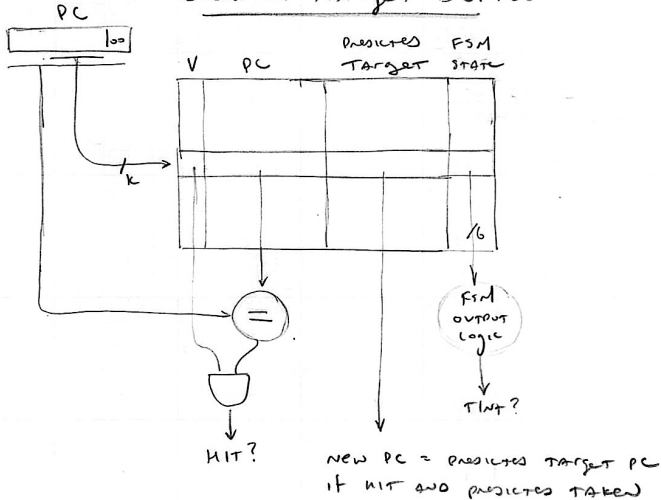 PC
Target Buffer
00
V PC PREDICTED TARGET FSM STATE
K
/6
=
FSM OUTPUT LOGIC
HIT?
T/NT?
NEW PC = PREDICTED TARGET PC
IF HIT AND PREDICTED TAKEN